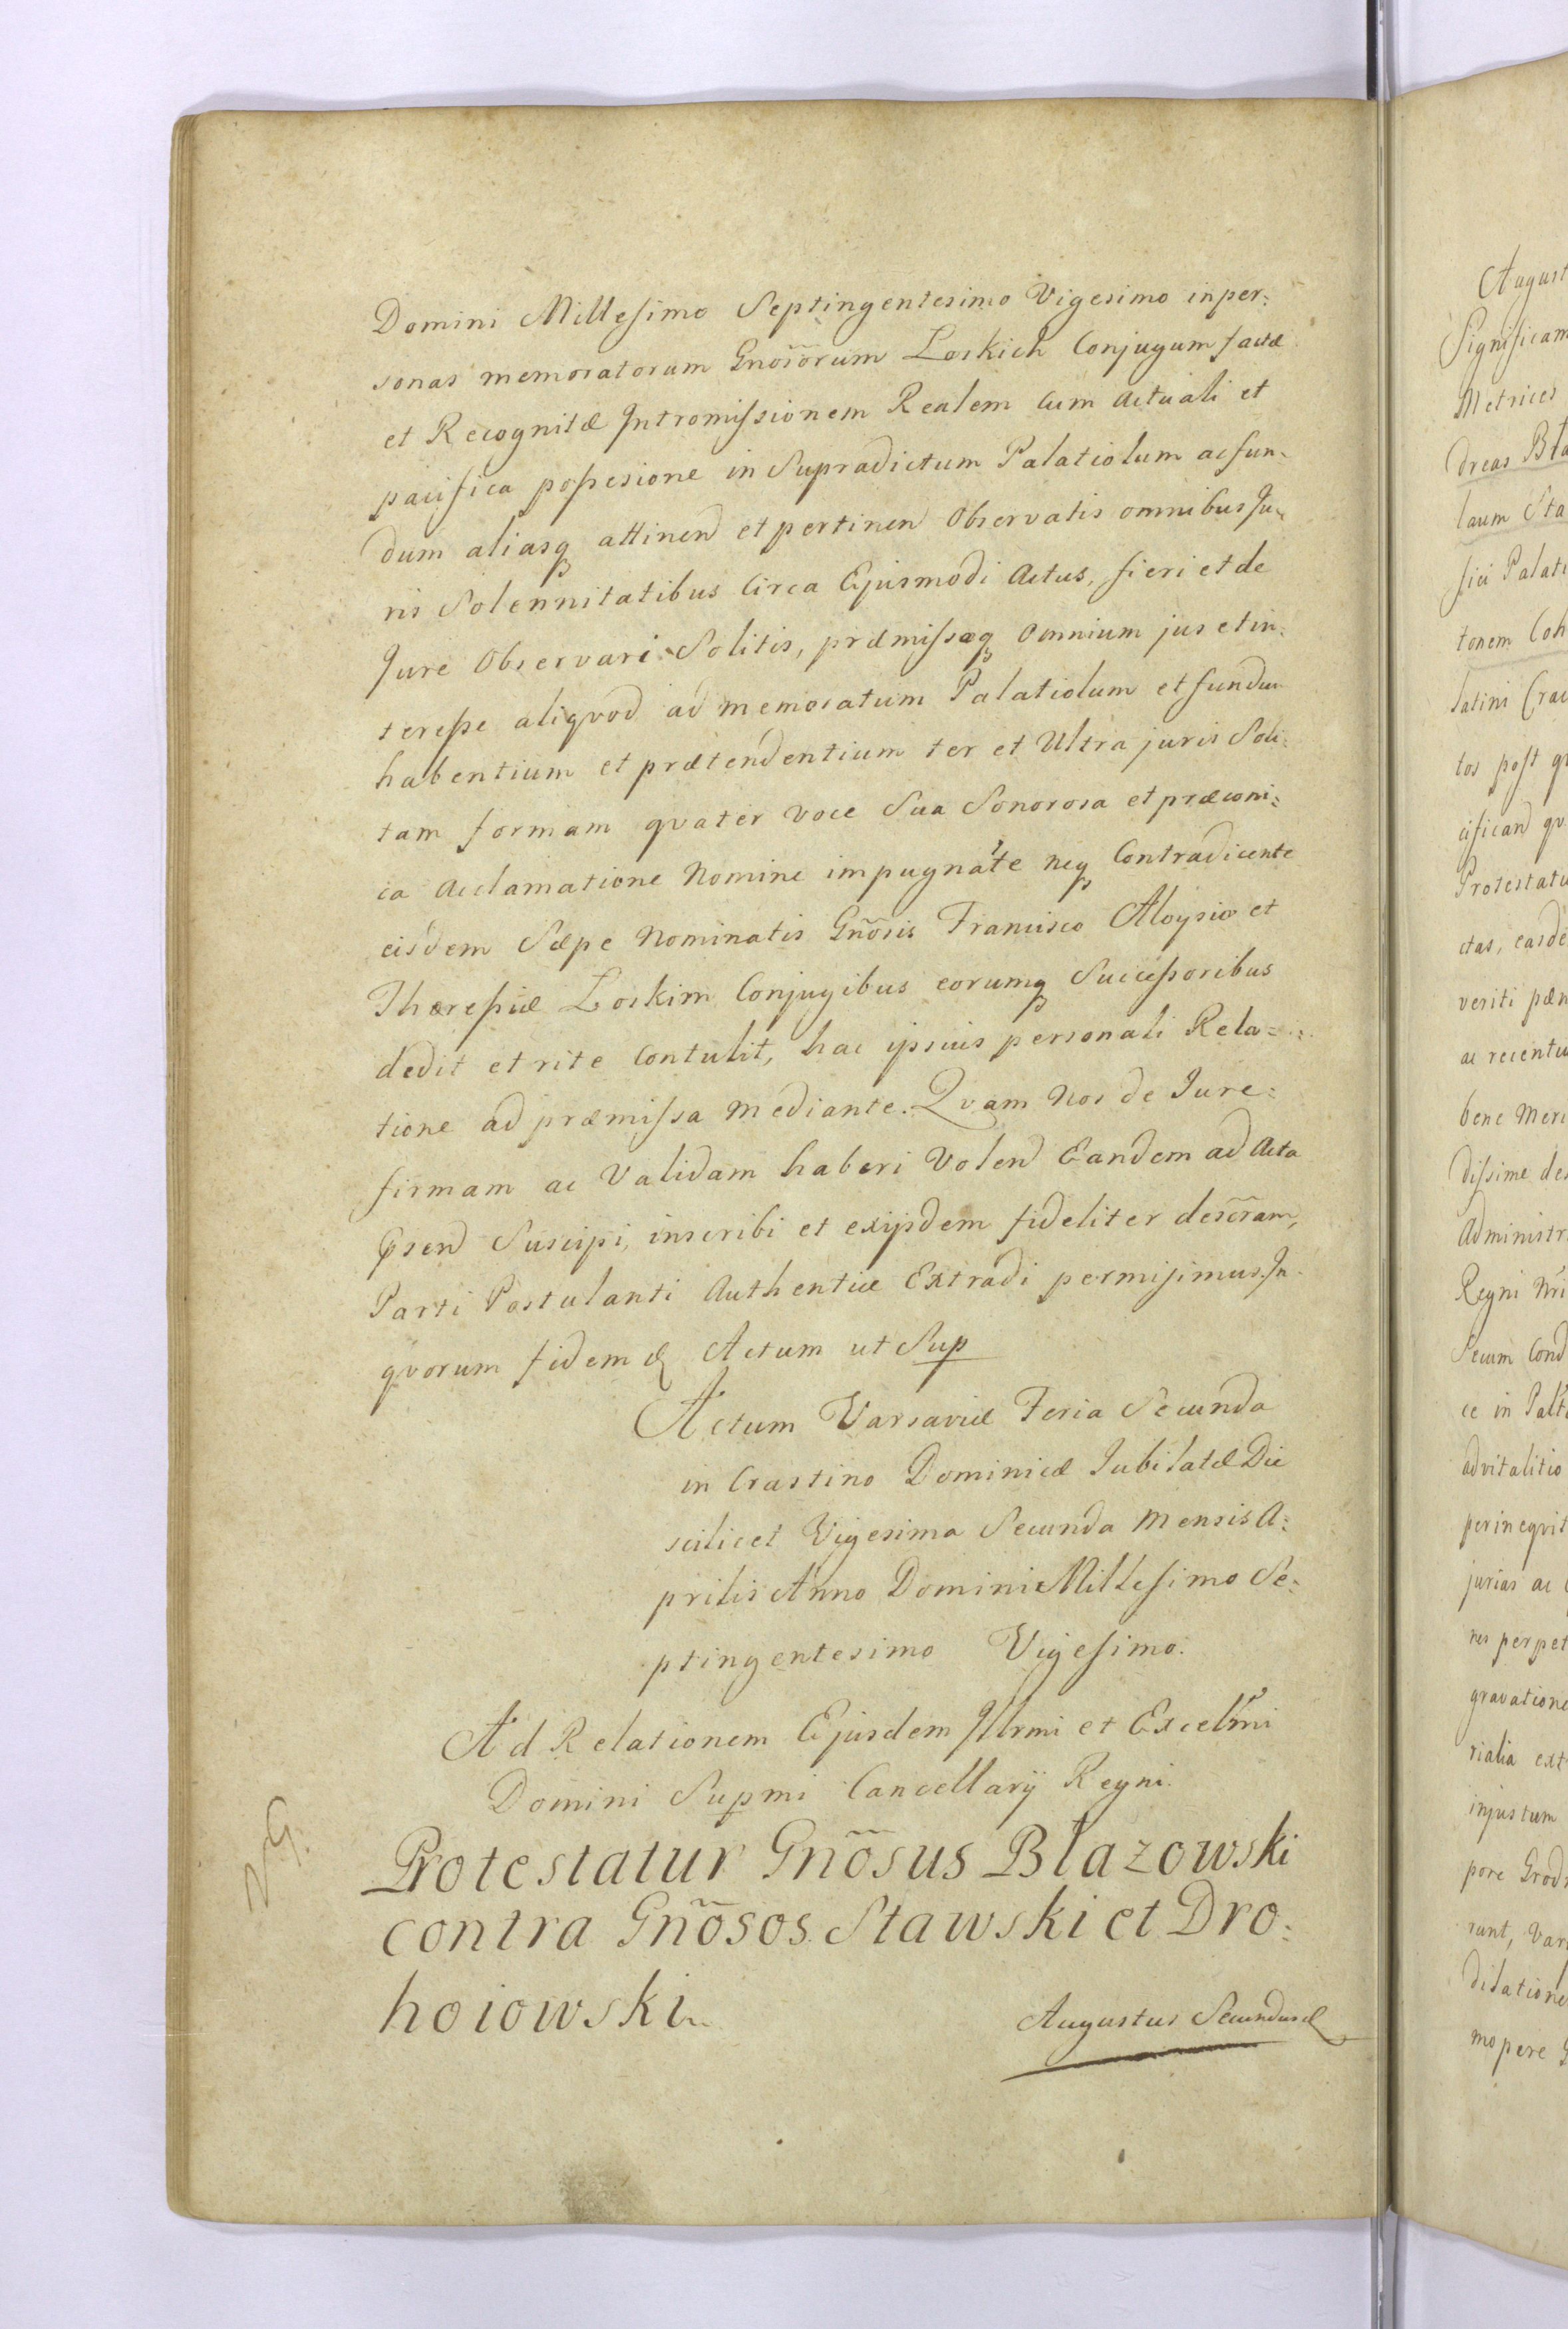 Domini Millesimo Septingentesimo Vigesimo in per:
sonas memoratorum Gnõsorum Loskich Conjugum factæ
et Recognitæ Intromissionem Realem cum actuali et
pacifica possesione in Supradictum Palatiolum ac fun-
dum aliasq attinend et pertinend Observatis omnibus Ju-
ris Solennitatibus Circa Ejusmodi Actus, fieri et de
Jure Observari Solitis, præmissaq Omnium jus et in:
teresse aliqvod ad memoratum Palatiolum et fundum
habentium et prætendentium ter et Ultra juris Soli:
tam formam qvater voce Sua Sonorosa et præconi:
ca acclamatione Nemine impugnate neq Contradicente
eisdem Sæpe Nominatis Gnõsis Francisco Aloysio et
Thæresiæ Loskim Conjugibus eorumq Successoribus
dedit et rite Contulit, hac ipsius personali Rela=
tione ad præmissa mediante. Qvam Nos de Jure:
firmam ac Validam haberi Volend Eandem ad Acta
Psend Suscipi, inscribi et exijsdem fideliter descram,
Parti Postulanti Authentice Extradi permisimus. In
qvorum fidem & Actum ut Sup
Actum Varsaviæ Feria Secunda
in Crastino Dominicæ Jubilatæ Die
scilicet Vigesima Secunda Mensis A:
prilis Anno Domini Millesimo Se:
ptingentesimo Vigesimo.
Ad Relationem Ejusdem Illrmi et Excellmi
Domini Supmi Cancellarij Regni.
Protestatur Gnõsus Błazowski
contra Gnõsos Stawski et Dro:
hoiowski
Augustus Secundus &
August
Significam
Metrices
dreas Bła
laum Sta
fici Palati
tonem Coh
latini Crac
tos post q
cificand qv
Protestatu
ctas, easde
veriti pæn
ac recentu
bene Meri
dissime des
Administr
Regni Nri
Secum Cond
ce in Palt
advitalitio
perineqvit
jurias ac
nes perpet
gravatione
rialia ext
injustum
pore Grodn
runt, Var
dilatione
mopere